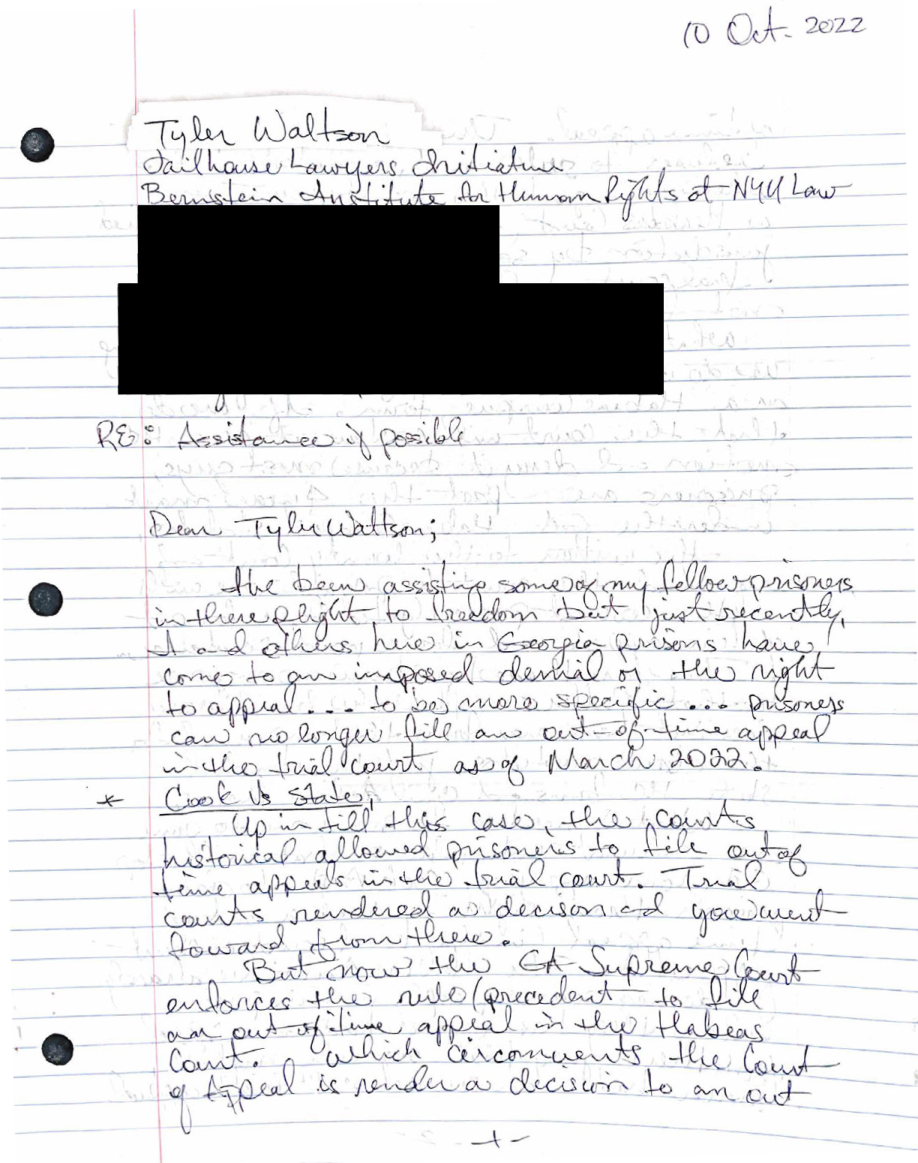 10 Oct. 2022
Tyler Waltson
Jailhouse Lawyers Initiative
Bernstein Institute for Human Rights at NYU Law
RE: Assistance if possible
Dear Tyler Wattson;
been assisting some of my fellow prisoners
in there plight to freedom but just recently,
I and others here in Georgia prisons have
come to an imposed denial of the right
to appeal... to be more specific... prisoners
can no longer file an out-of-time appeal
in the trial court as of March 2022.
* Cook Vs State,
Up in till this case, the courts
historical allowed prisoners to file out of
time appeals in the trial court. Trial
courts rendered a decison and you went
foward from there.
But now the GA Supreme Court
enforces the rule/precedent to file
an out of time appeal in the Habeas
Court. which circomvents the Court
of Appeal is render a decision to an out
-1-